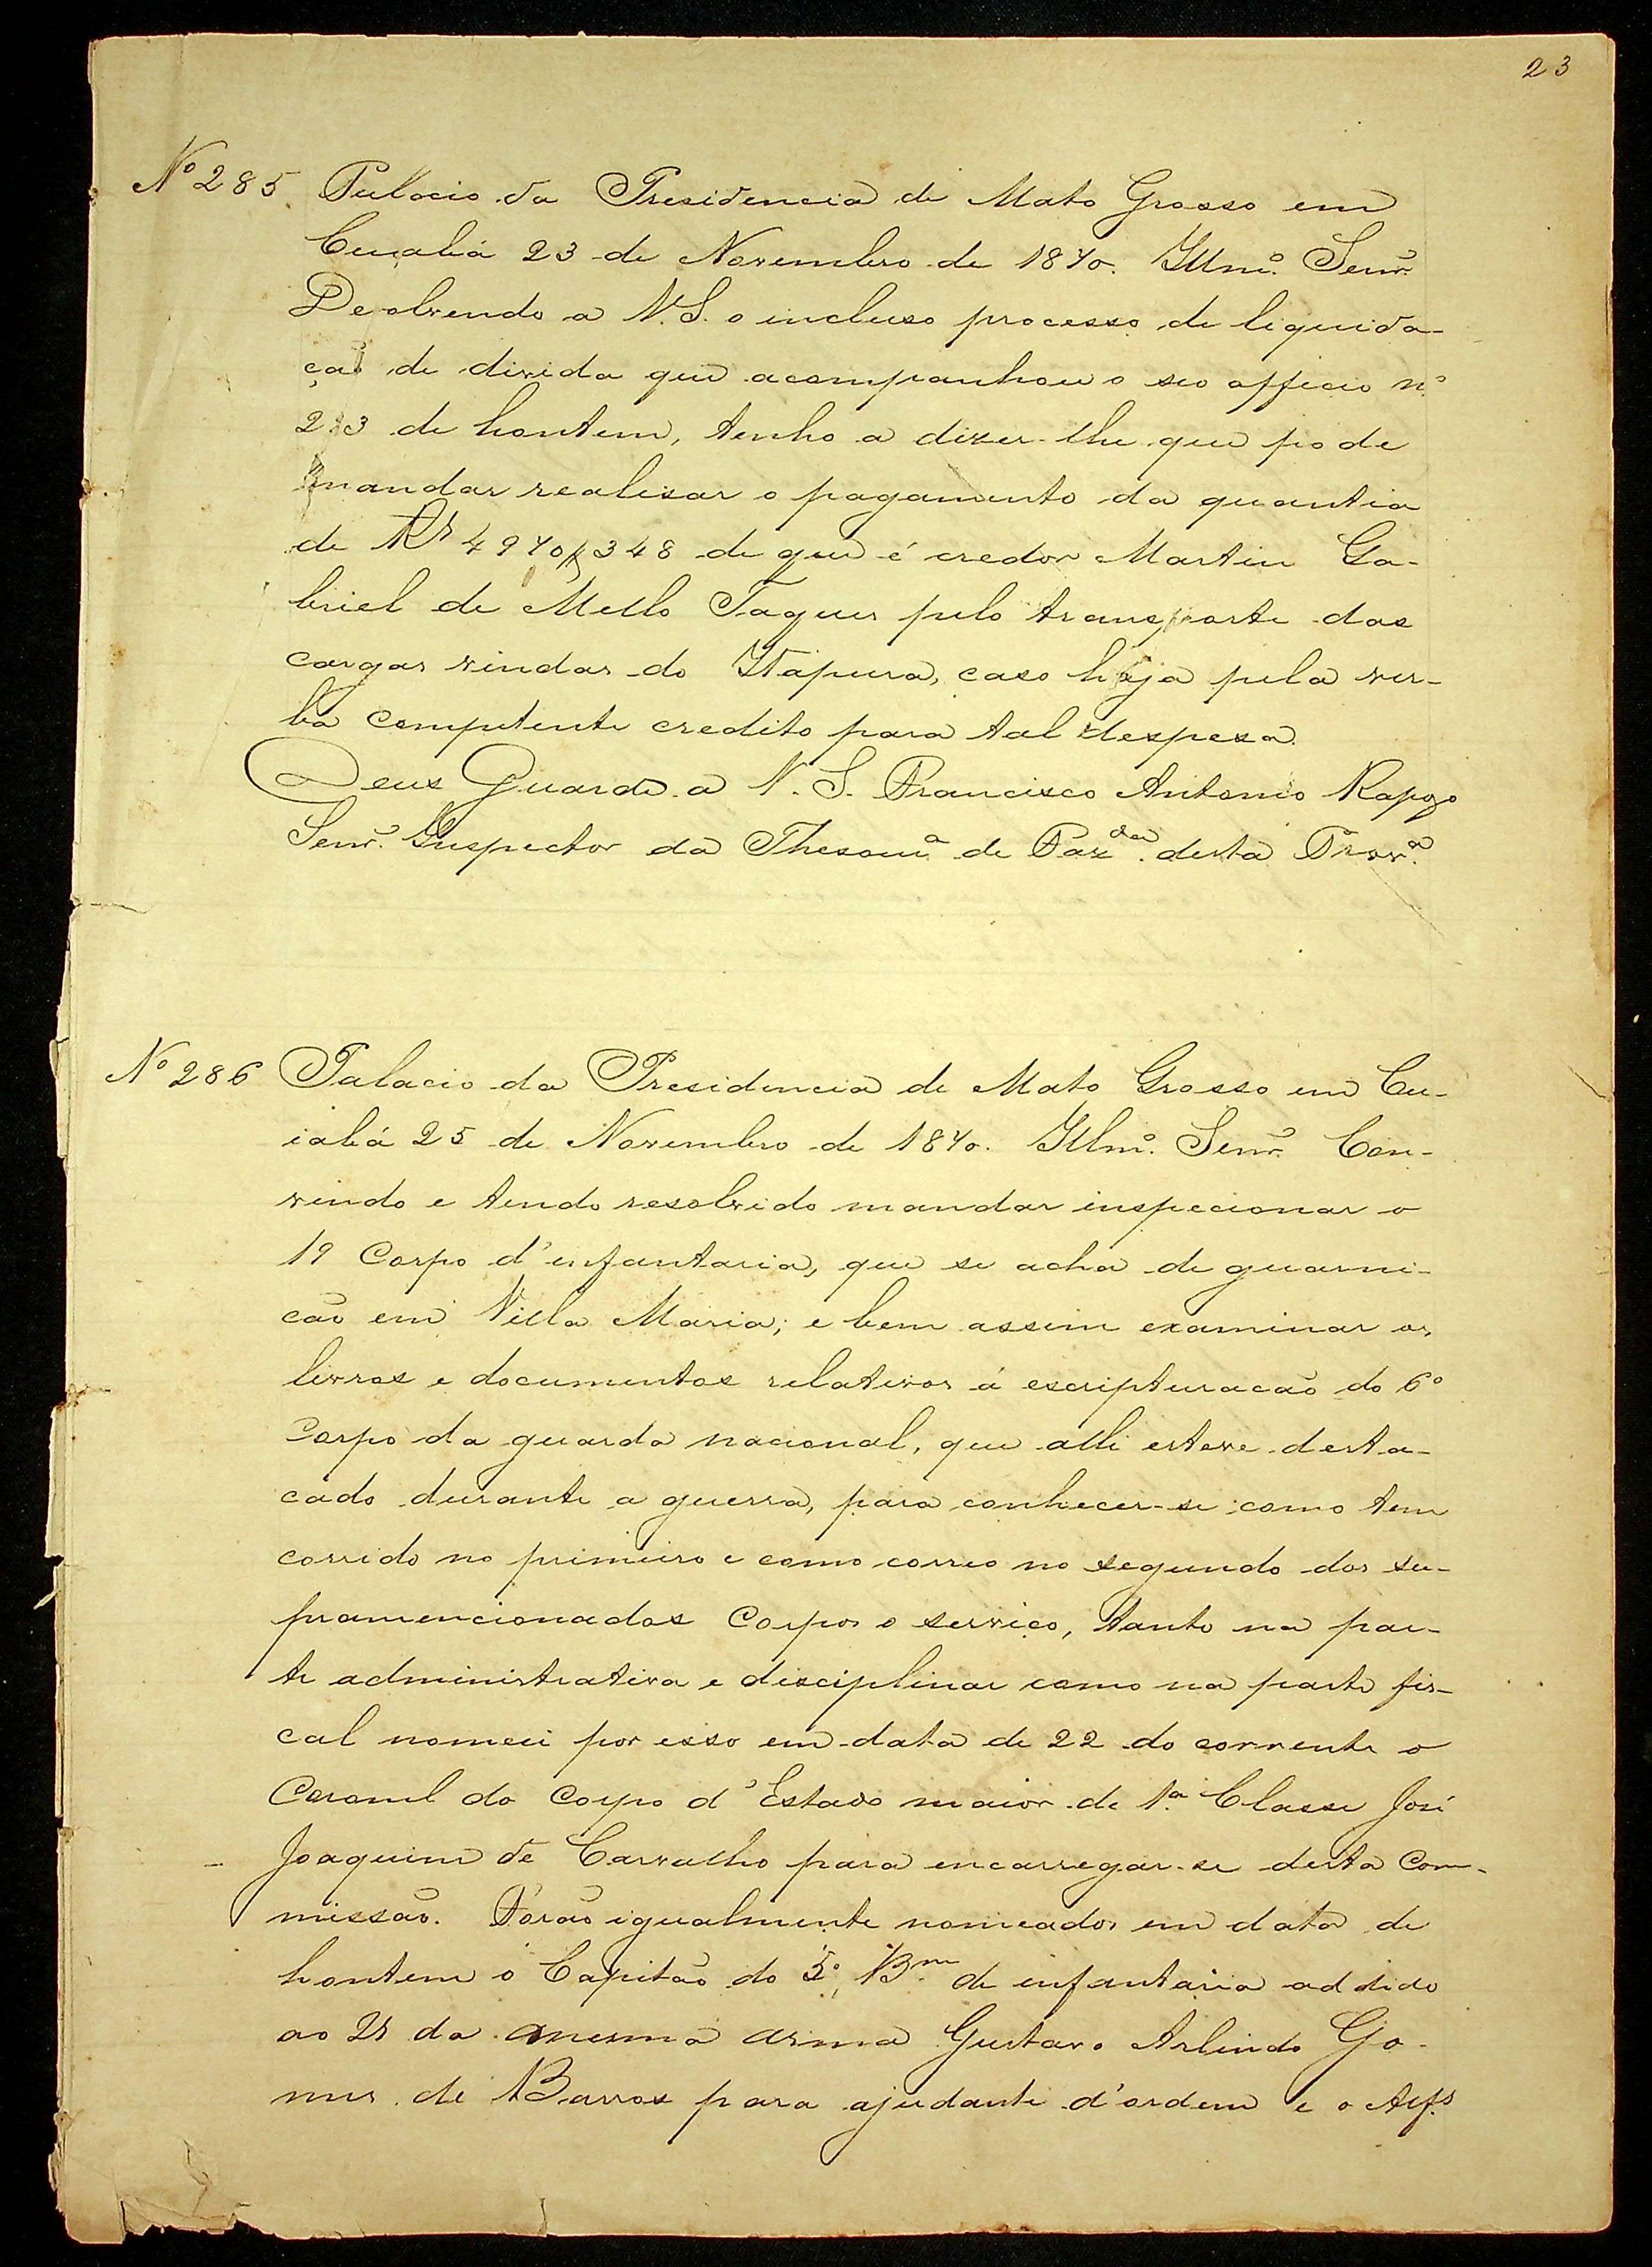 23
Nº 285. Palacio da Presidencia de Mato Grosso em
Cuiabá 23 de Novembro de 1870. Illmº. Senr.
Devolvendo a V.S. o incluso processo de liquida-
ção de divida que acompanhou o seo officio nº
de hontem, tenho a dizer-lhe que pode
mandar realisar o pagamento da quantia
de Rs 4970$348 de que é credor Martin Ga-
briel de Mello Taques pelo transporte das
cargas vindas do Itapura, caso haja pela ver-
ba competente credito para tal despesa.
Deus Guarde a V. S. Francisco Antonio Rapozo
Senr. Inspector da Thesourª de Fazda. desta Provª.
Nº 286 Palacio da Presidencia de Mato Grosso em Cu-
iabá 25 de Novembro de 1870. Illmº. Senr. Con-
vindo e tendo resolvido mandar inspecionar o
19 Corpo d'infantaria, que se acha de guarni-
cão em Villa Maria; e bem assim examinar os
livros e documentos relativos á escripturacão do 6º
Corpo da guarda nacional, que alli esteve desta-
cado durante a guerra, para conhecer-se como tem
corrido no primeiro e como correo no segundo dos su-
pramencionados Corpos o serviço, tanto na par-
te administrativa e disciplinar como na parte fis-
cal nomeei por isso em data de 22 do corrente o
Coronel do Corpo d'Estado maior de 1ª. Classe José
Joaquim de Carvalho para encarregar-se desta Com-
missão. Forão igualmente nomeados em data de
hontem o Capitão do 5º. Bm. de infantaria addido
ao 21 da mesma arma Gustavo Arlindo Go-
mes de Barros para ajudante d'ordem e o Alfs